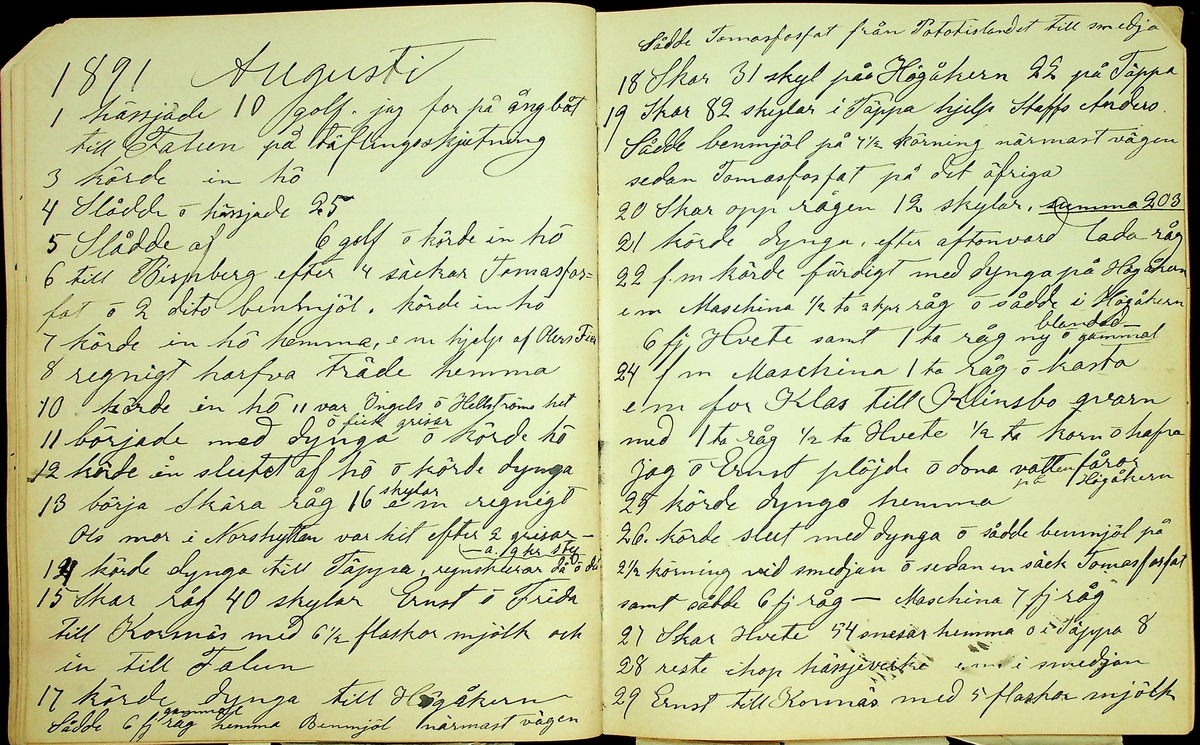 1891 Augusti
1 hässjade 10 golf. jag for på ångbåt
till Falun på täflingsskjutning
3 körde in hö
4 Slådde o hässjade 25
5 Slådde af 6 golf o körde in hö
6 till Bispberg efter 4 säckar Tomasfos=
fat o 2 dito benmjöl. körde in hö
7 körde in hö hemma, e m hjelp af Olers
8 regnigt harfva träde hemma
10 körde in hö 11 var Ingels o Hellströms hit
o fick grisar
11 började med dynga o körde hö
12 körde in slutet af hö o körde dynga
13 börja skära råg 16 skylar e m regnigt
Ols mor i Norshyttan var hit efter 2 grisar
a. 19 kr st
14 körde dynga till Täppa, regnskurar då o då
15 Skar råg 40 skylar Ernst o Frida
till Kornäs med 6 1/2 flaskor mjölk och
in till Falun
17 körde dynga till Högåkern
Sådde 6 fj gammal råg hemma Benmjöl närmast vägen
Sådde Tomasfosfat från Pototislandet till smedja
18 Skar 31 skyl på Högåkern 22 på Täppa
19 Skar 82 skylar i Täppa hjelp Staffs Anders.
Sådde benmjöl på 4 1/2 körning närmast vägen
sedan Tomasfosfat på det öfriga
20 Skar opp rågen 12 skylar. summa 203
21 körde dynga, efter aftonvard lada råg
22 f.m körde färdigt med dynga på Högåkern
e m Maschina 1/2 ta 2 kpr råg o sådde i Högåkern
6 fj Hvete samt 1 ta råg ny o gammal
blandad
24 f m Maschina 1 ta råg o kasta
e m for Klas till Klinsbo qvarn
med 1 ta råg 1/2 ta Hvete 1/2 ta korn o hafra
jag o Ernst plöjde o dona vattenfåror
på Högåkern
25 körde dynga hemma
26. körde slut med dynga o sådde benmjöl på
2 1/2 körning vid smedjan o sedan en säck Tomasfosfat
samt sådde 6 fj råg — Maschina 7 fj råg
27 Skar Hvete 54 snesar hemma o i Täppa 8
28 reste ihop hässjevirke e m i smedjan
29 Ernst till Kornäs med 5 flaskor mjölk